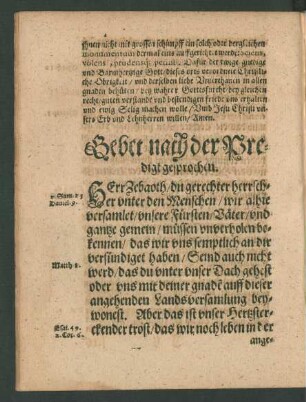 jhnen nicht mit grossen schimpff ein solch oder dergleichen
volens, prudensq; pereat. Dafür der ewige gütige
vnd Barmhertzige Gott/ dieses orts verordente Christli-
che Obrigkeit/ vnd derselben liebe Vnterthanen in allen
gnaden behüten/ bey wahrer Gottesfurcht bey gleichen
recht/ guten verstande vnd bestendigen friede vns erhalten
vnd ewig Selig machen wolle/ Vmb Jesu Christi vn-
sers Erb vnd Lehnherren willen/ Amen.
Gebet nach der Pre-
digt gesprochen.
2. Sam. 23
HErr Zebaoth/ du gerechter herrsch-
Daniel. 9.
er vnter den Menschen/ wir alhie
versamlet/ vnsere Fürsten/ Väter/ vnd
gantze gemein/ müssen vnverholen be-
kennen/ das wir vns semptlich an dir
versündiget haben/ Seind auch nicht
Matth 8.
werd/ das du vnter vnser Dach gehest
oder vns mit deiner gnade auff dieser
angehenden Lands versamlung bey-
wonest. Aber das ist vnser Hertzster-
Esai. 49.
ckender trost/ das wir noch leben in der
2. Cor. 6.
ange-